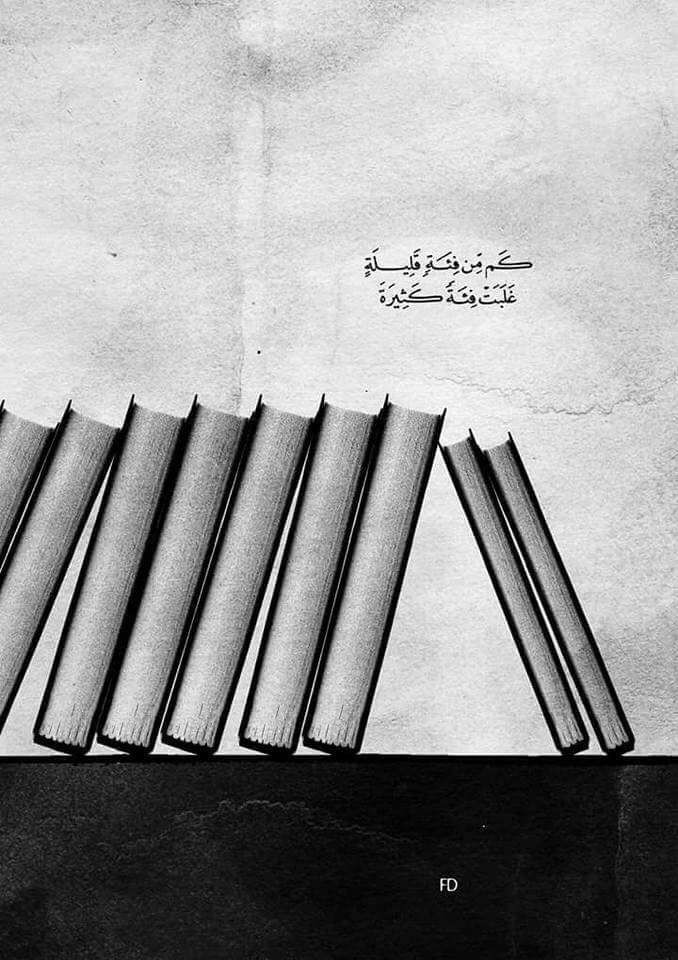 كَم مِّن فِئَةٍ قَلِيلَةٍ
غَلَبَتْ فِئَةً كَثِيرَةَ
FD